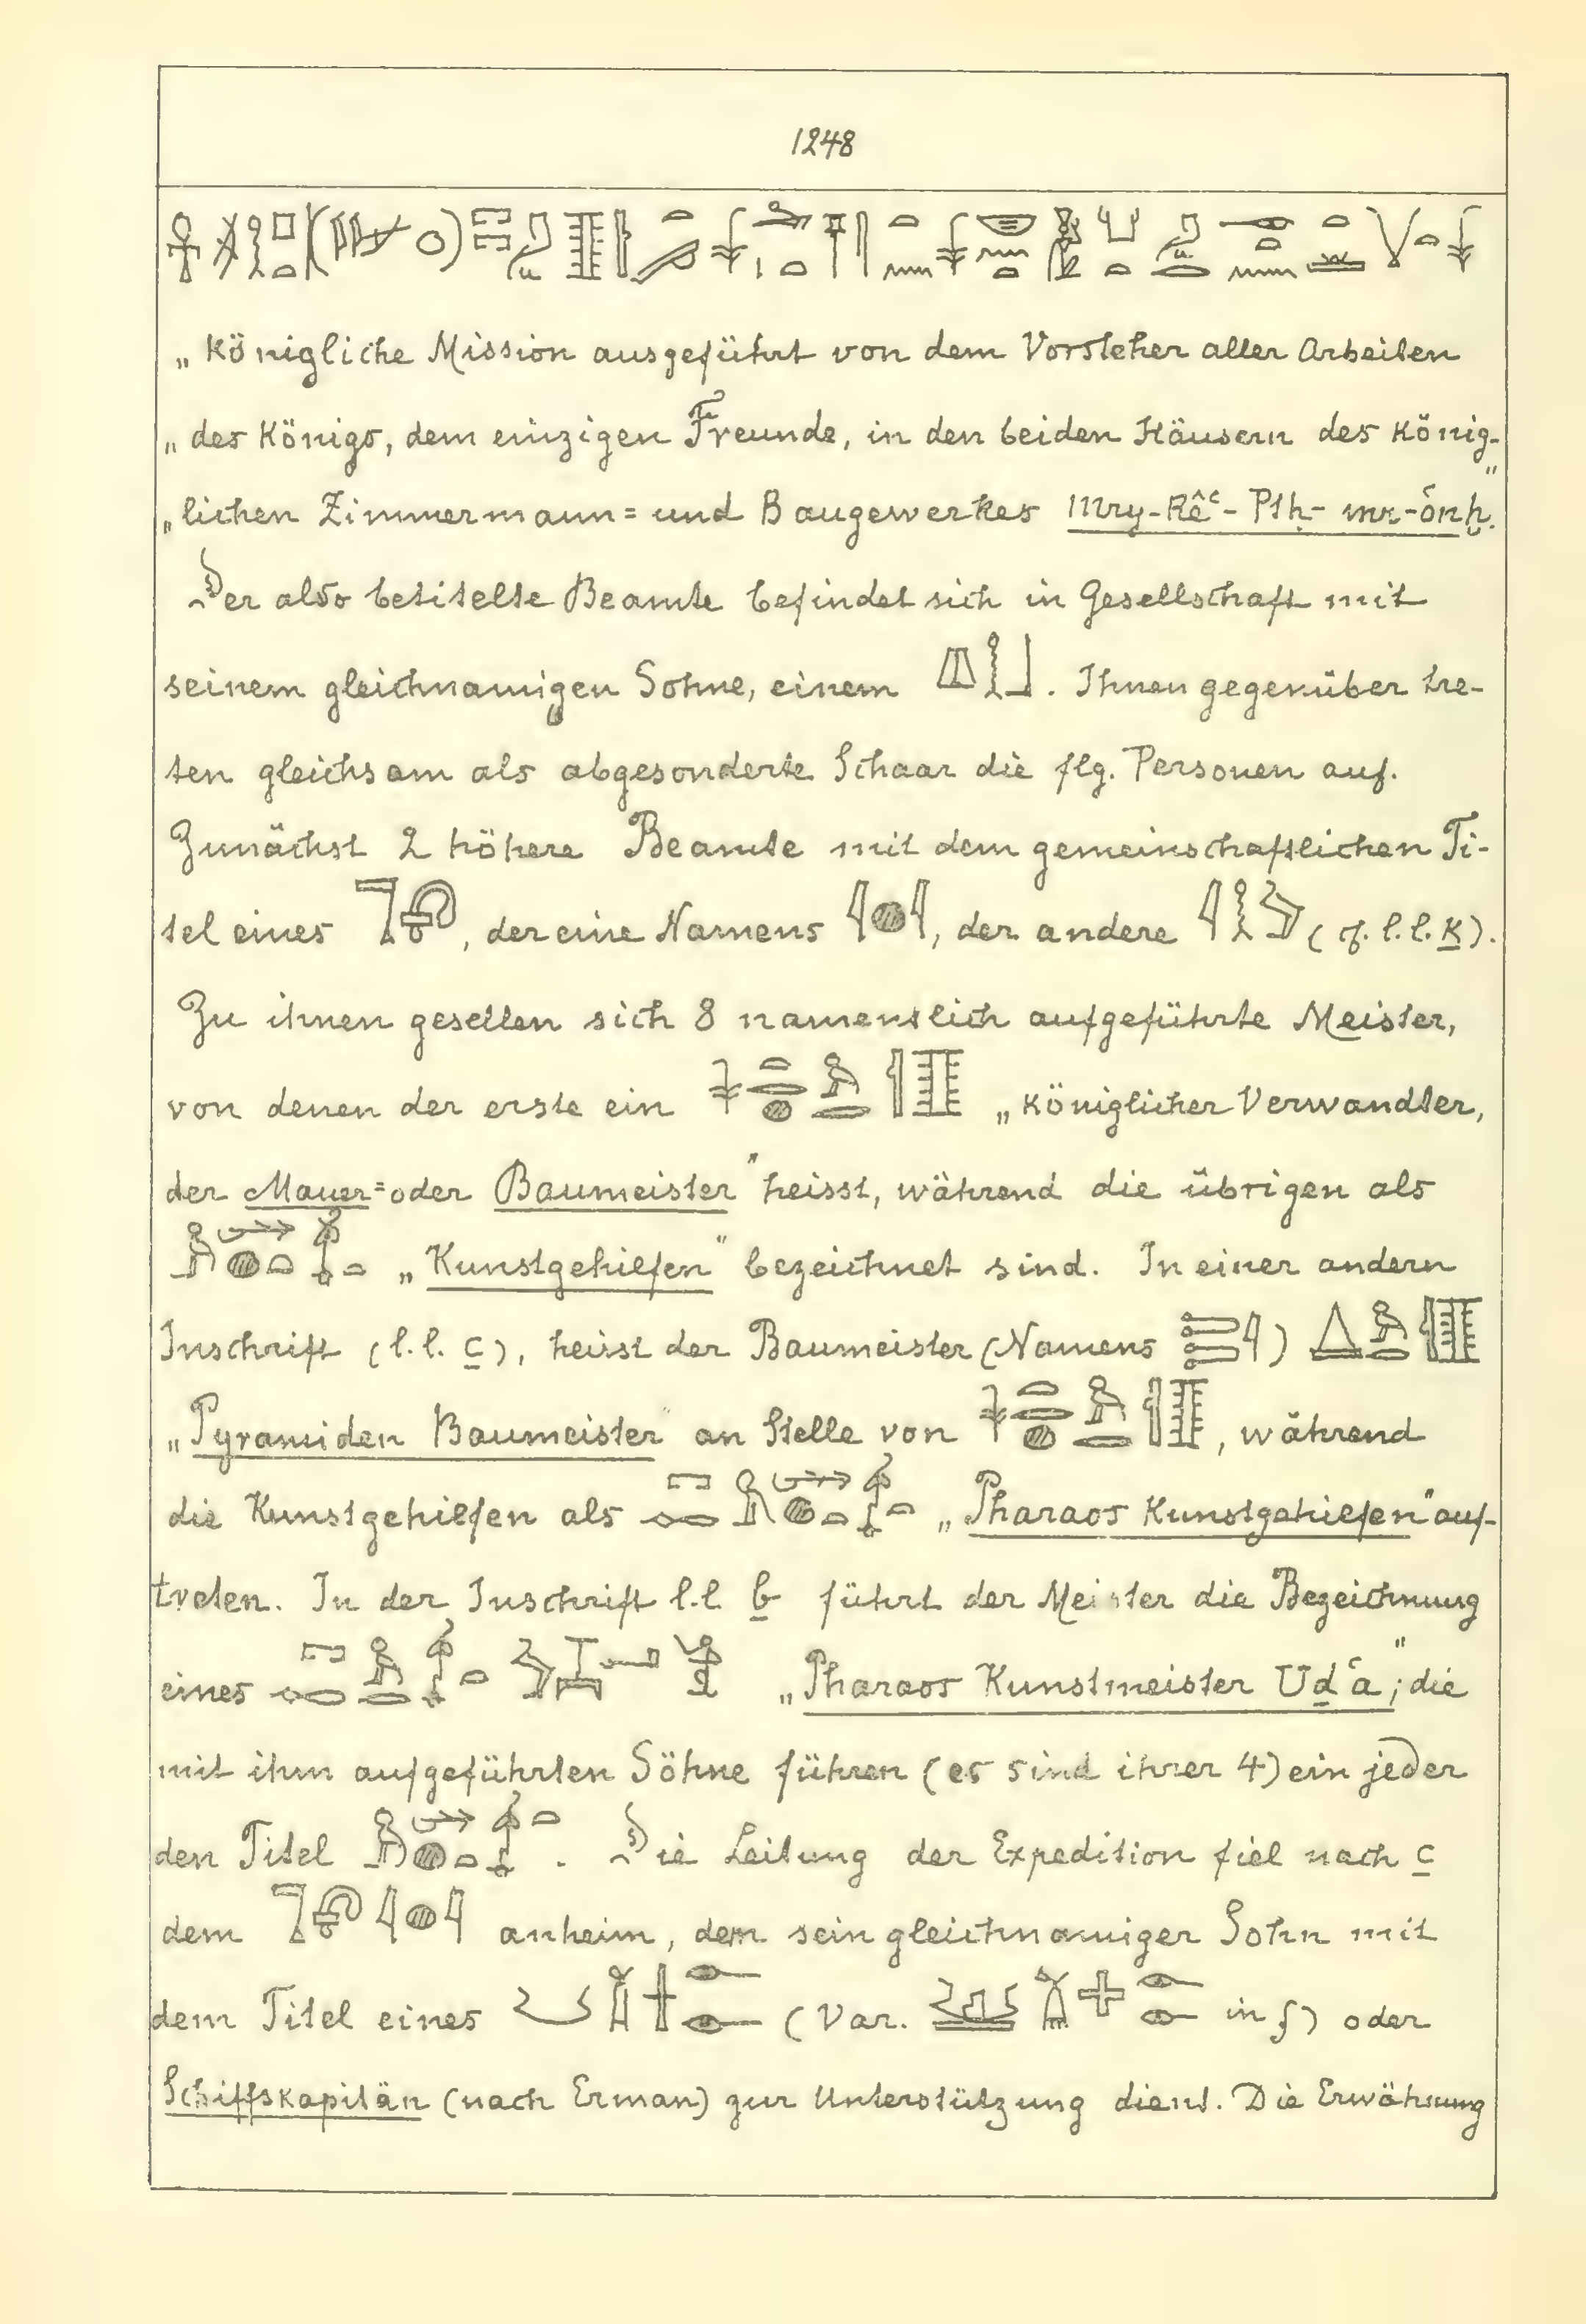 1248
„Königliche Mission ausgeführt von dem Vorsteher aller Arbeiten
„des Königs, dem einzigen Freunde, in den beiden Häusern des König-
„lichen Zimmermann= und Baugewerkes Mry-Rêᶜ-Ptḥ-mr-ónḫ."
Der also betitelte Beamte befindet sich in Gesellschaft mit
seinem gleichnamigen Sohne, einem . Ihnen gegenüber tre-
ten gleichsam als abgesonderte Schaar die flg. Personen auf.
Zunächst 2 höhere Beamte mit dem gemeinschaftlichen Ti-
tel eines , der eine Namens , der andere (cf. l.l. K).
Zu ihnen gesellen sich 8 namentlich aufgeführte Meister,
von denen der erste ein „Königlicher Verwandter,
der Mauer= oder Baumeister" heisst, während die übrigen als
„Kunstgehilfen" bezeichnet sind. In einer andern
Inschrift (l.l. c), heisst der Baumeister (Namens )
„Pyramiden Baumeister" an Stelle von , während
die Kunstgehilfen als „Pharaos Kunstgehilfen" auf-
treten. In der Inschrift l.l b führt der Meister die Bezeichnung
eines „Pharaos Kunstmeister Uḏá"; die
mit ihm aufgeführten Söhne führen (es sind ihrer 4) ein jeder
den Titel . Die Leitung der Expedition fiel nach c
dem anheim, dem sein gleichnamiger Sohn mit
dem Titel eines (Var. in f) oder
Schiffskapitän (nach Erman) zur Unterstützung dient. Die Erwähnung